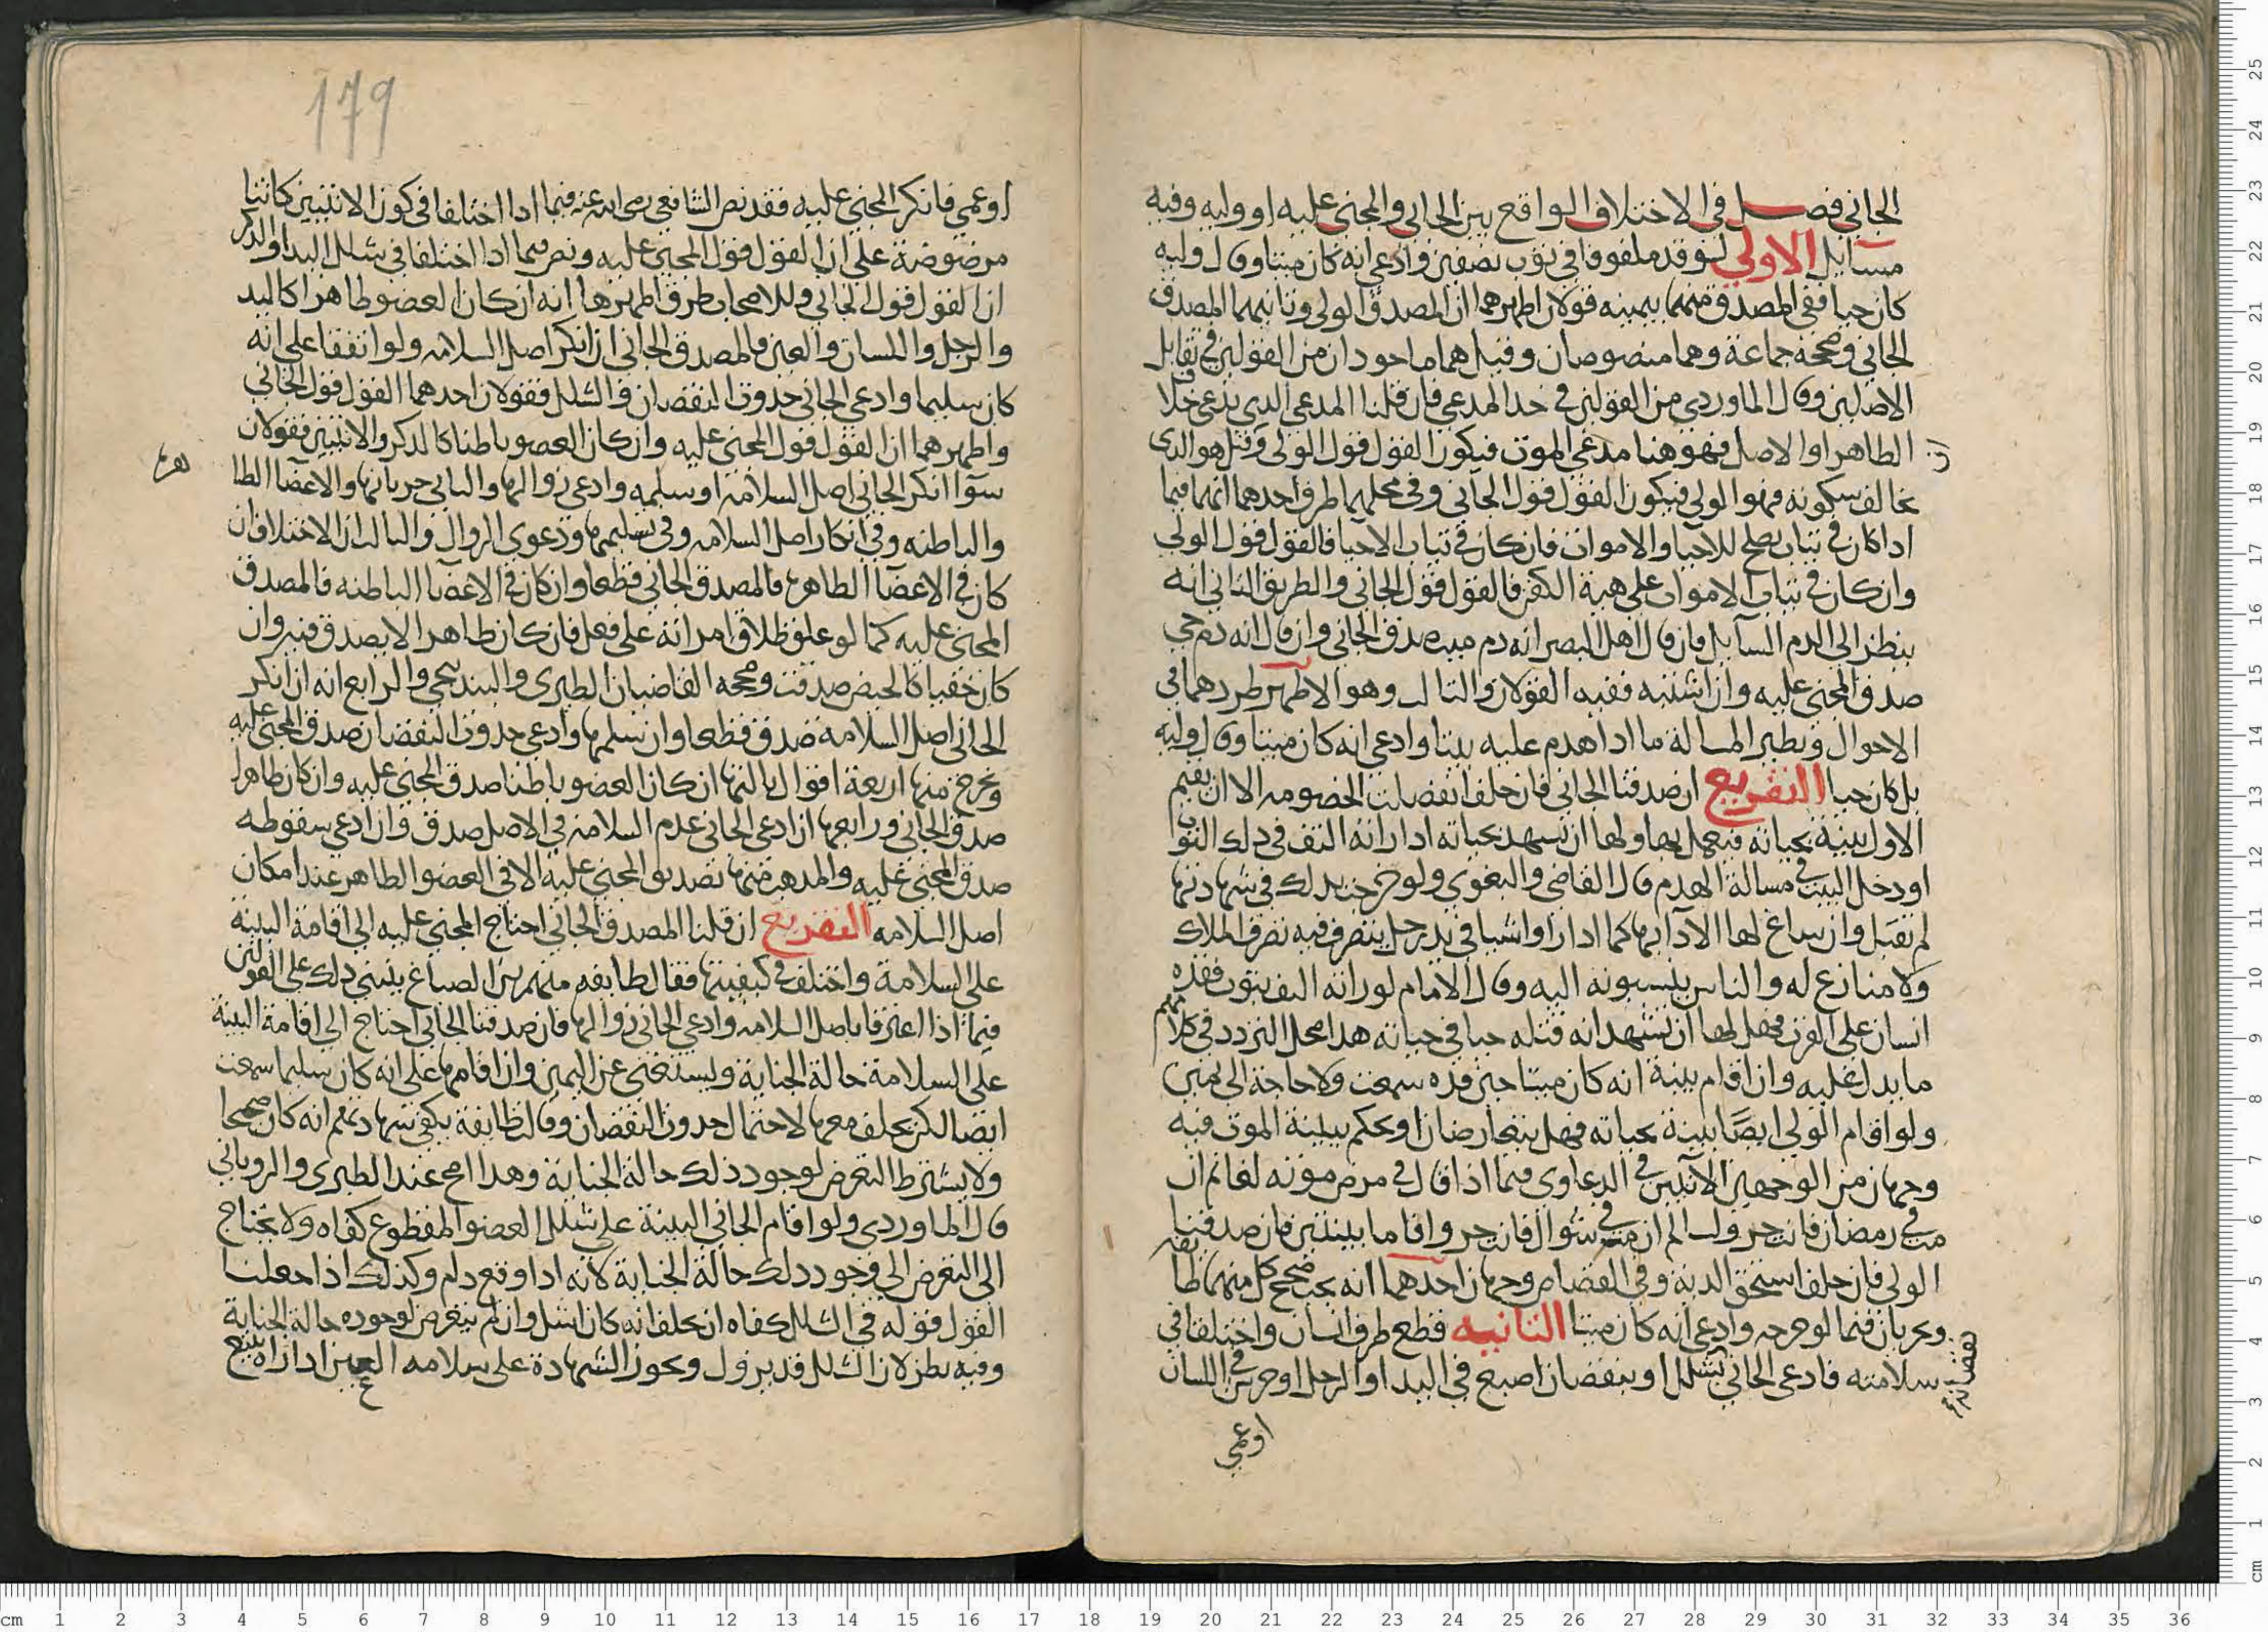 الجاني فصل في الاختلاف الواقع بين الجاني والمجنى عليه او وليه وفيه
مسايل الاولي لو قد ملفوفا في ثوب نصفين وادعي انه كان ميتا وقال وليه
كان حيا ففي المصدق منهما بيمينه قولان اظهرهما ان المصدق الولي وثانيهما المصدق
الجاني وصححه جماعة وهما منصوصان وقيل هما ماخوذان من القولين في تقابل
الاصلين وقال الماوردي من القولين في حد المدعي فان قلنا المدعي الذي يدعي خلاف
الظاهر او الاصل فهو هنا مدعي الموت فيكون القول قول الولي وقيل هو الذي
يخالف سكوته فهو الولي فيكون القول قول الجاني وفي محلهما طرق احدهما انهما فيما
اذا كان في ثياب يصلح للاحيا والاموات فان كان في ثياب الاحيا فالقول قول الولي
وان كان في ثياب الاموات علي هية الكفن فالقول قول الجاني والطريق الثاني انه
ينظر الي الدم السايل فان قال اهل البصر انه دم ميت صدق الجاني وان قال انه دم حي
صدق المجني عليه وان اشتبه ففيه القولان والثالث وهو الاظهر طردهما في
الاحوال ونظير المسالة ما اذا هدم عليه بيتا وادعي انه كان ميتا وقال وليه
بل كان حيا التفريع ان صدقنا الجاني فان حلف انفصلت الخصومه الا ان يقيم
الاول بينة بحياته فيعمل بها ولها ان تشهد بحياته اذا راته التف في ذلك الثوب
او دخل البيت في مسالة الهدم قال القاضي والبغوي ولو صرحت بذلك في شهادتها
لم تقبل وان ساغ لها الادا بها كما اذا راوا شيا في يد رجل يتصرف فيه تصرف الملاك
ولا منازع له والناس ينسبونه اليه وقال الامام لو راته التف بثوب فقده
انسان علي القرب فهل لها ان تشهد انه قتله حيا في حياته هذا محل التردد في كلامهم
ما يدل عليه وان اقام بينة انه كان ميتا حين قده سمعت ولا حاجة الي يمين
ولو اقام الولي ايضا بينة بحياته فهل يتعارضان او يحكم ببينة الموت فيه
وجهان من الوجهين الاتيين في الدعاوي فيما اذا قال في مرض موته لغانم ان
مت في رمضان فانت حر ولسالم ان مت في شوال فانت حر واقاما بينتين فان صدقنا
الولي فان حلف استحق الدية وفي القصاص وجهان احدهما انه يجب صحح كل منهما طايفة
ويجريان فيما لو جرحه وادعي انه كان ميتا الثانيه قطع طرف انسان واختلفا في
سلامته فادعي الجاني شلل او بنقصان اصبع في اليد او الرجل او خرس في اللسان
او عمي
179
او عمي فانكر المجني عليه فقد نص الشافعي رضي الله عنه فيما اذا اختلفا في كون الانثيين كانتا
مرضوضة علي ان القول قول المجني عليه ونص فيما اذا اختلفا في شلل اليد او الذكر
ان القول قول الجاني وللاصحاب طرق اظهرها انه ان كان العضو ظاهرا كاليد
والرجل واللسان والعين فالمصدق الجاني ان انكر اصل السلامه ولو اتفقا علي انه
كان سليما وادعي الجاني حدوث النقصان والشلل فقولان احدهما القول قول الجاني
واظهرهما ان القول قول المجني عليه وان كان العضو باطنا كالذكر والانثيين فقولان
سوا انكر الجاني اصل السلامة او سلمه وادعي زوالها والثاني جريانهما والاعضا الظا
هرة
والباطنه وفي انكار اصل السلامه وفي تسليمها ودعوي الزوال والثالث ان الاختلاف ان
كان في الاعضا الظاهره فالمصدق الجاني قطعا وان كان في الاعضا الباطنه فالمصدق
المجني عليه كما لو علق طلاق امراته علي فعل فان كان ظاهرا لا يصدق فيه وان
كان خفيا كالحيض صدقت وصححه القاضيان الطبري والبندنيجي والرابع انه ان انكر
الجاني اصل السلامة صدق قطعا وان سلمها وادعي حدوث النقصان صدق المجني عليه
ويخرج منها اربعة اقوال ثالثها ان كان العضو باطنا صدق المجني عليه وان كان ظاهرا
صدق الجاني ورابعها ان ادعي الجاني عدم السلامة في الاصل صدق وان ادعي سقوطه
صدق المجني عليه والمذهب منها تصديق المجني عليه الا في العضو الظاهر عند امكان
اصل السلامه التفريع ان قلنا المصدق الجاني احتاج المجني عليه الي اقامة البينة
علي السلامة واختلف في كيفيتها فقال طايفه منهم بن الصباغ ينبني ذلك علي القولين
فيما اذا اعترفا باصل السلامه وادعي الجاني زوالها فان صدقنا الجاني احتاج الي اقامة البينة
علي السلامة حالة الجناية ويستغني عن اليمين وان اقامها علي انه كان سليما سمعت
ايضا لكن يحلف معها لاحتمال حدوث النقصان وقالت طايفة يكفي شهادتهم انه كان صحيحا
ولا يشترط التعرض لوجود ذلك حالة الجناية وهذا اصح عند الطبري والروياني
قال الماوردي ولو اقام الجاني البينة علي شلل العضو المقطوع كفاه ولا يحتاج
الي التعرض الي وجود ذلك حالة الجناية لانه اذا وقع دام وكذلك اذا جعلنا
القول قوله في الشلل كفاه ان يحلف انه كان اشل وان لم يتعرض لوجوده حالة الجناية
وفيه نظر لان الشلل قد يزول ويجوز الشهادة علي سلامه العين اذا راه يتبع